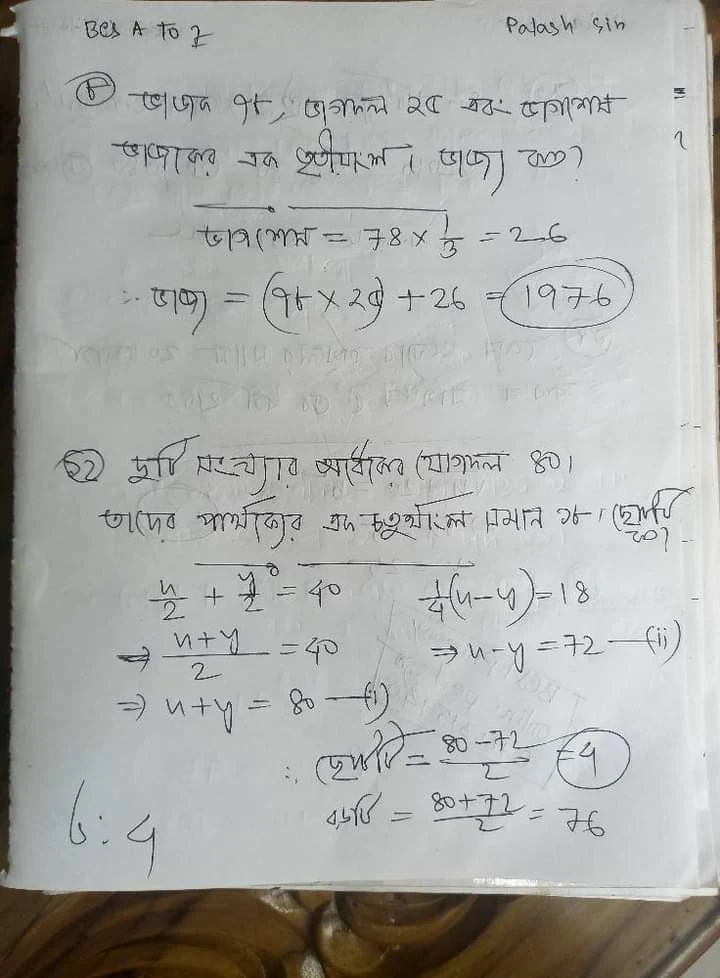 Bcs A To Z
Palash Sir
৮ ভাজক ৭৮, ভাগফল ২৫ এবং ভাগশেষ
ভাজকের এক তৃতীয়াংশ। ভাজ্য কত?
ভাগশেষ = 78 × 1/3 = 26
∴ ভাজ্য = (৭৮ × ২৫) + 26 = 1976
দুটি সংখ্যার অর্ধেকের যোগফল ৪০।
তাদের পার্থক্যের এক চতুর্থাংশ সমান ১৮। ছোটটি কত?
x/2 + y/2 = 40
1/4(x-y) = 18
⇒ x+y/2 = 40
⇒ x-y = 72 —(ii)
⇒ x+y = 80 —(i)
∴ ছোটটি = 80-72/2 = 4
বড়টি = 80+72/2 = 76
উ: 4